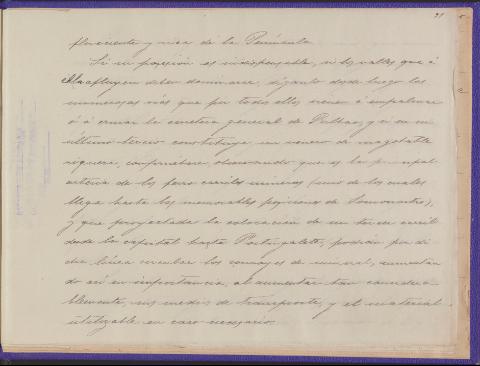 21
floreciente y rica de la Península.
Si su posesión es indispensable, si los valles que á
ella afluyen deben dominarse, díganlo desde luego las
numerosas vías que por todos ellos vienen á empalmar
ó á cruzar la carretera general de Bilbao, y si en su
último tercio constituye un venero de inagotable
riqueza, compruébase observando que es la principal
arteria de los ferro carriles mineros (uno de los cuales
llega hasta las memorables posiciones de Somorrostro),
y que proyectada la colocación de un tercer carril
desde la capital hasta Portugalete, podrán por di
cha línea circular los convoyes de mineral, aumentan
do así en importancia, al aumentar tan considera
blemente, sus medios de transporte, y el material
utilizable en caso necesario.